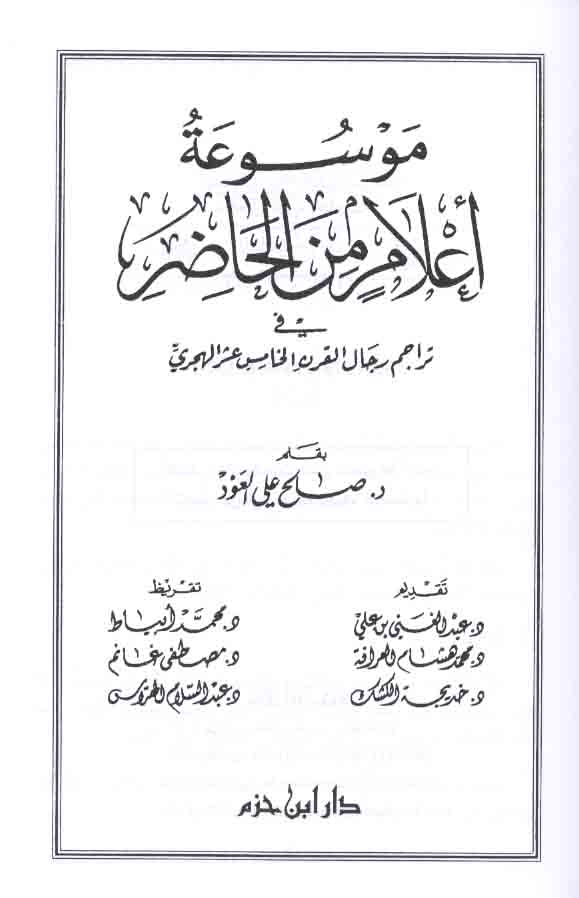 مَوْسُوعَةُ
أَعْلَامٍ مِنَ الحَاضِرِ
في
تراجم رجال القرن الخامس عشر الهجريّ
بقلم
د. صالح علي العَوْد
تقديم
د. عبد الغني بن علي
د. محمد هشام العرافة
د. خديجة الكشك
تقريظ
د. محمَّد أبياط
د. مصطفى غانم
د. عبد السّلام الهرّاس
دار ابن حزم